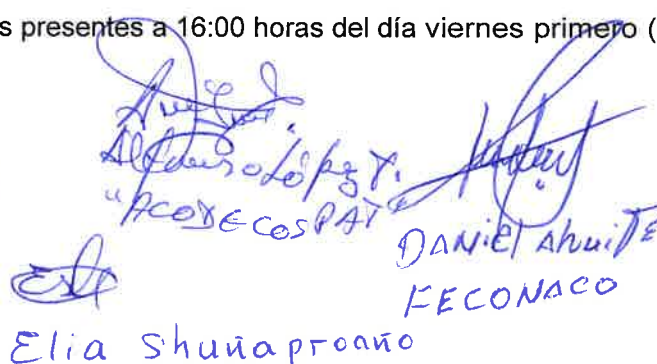 s presentes a 16:00 horas del día viernes primero (
Alfonso López T.
"ACODECOSPAT"
DANIEL Ahuite
FECONACO
Elia Shuña